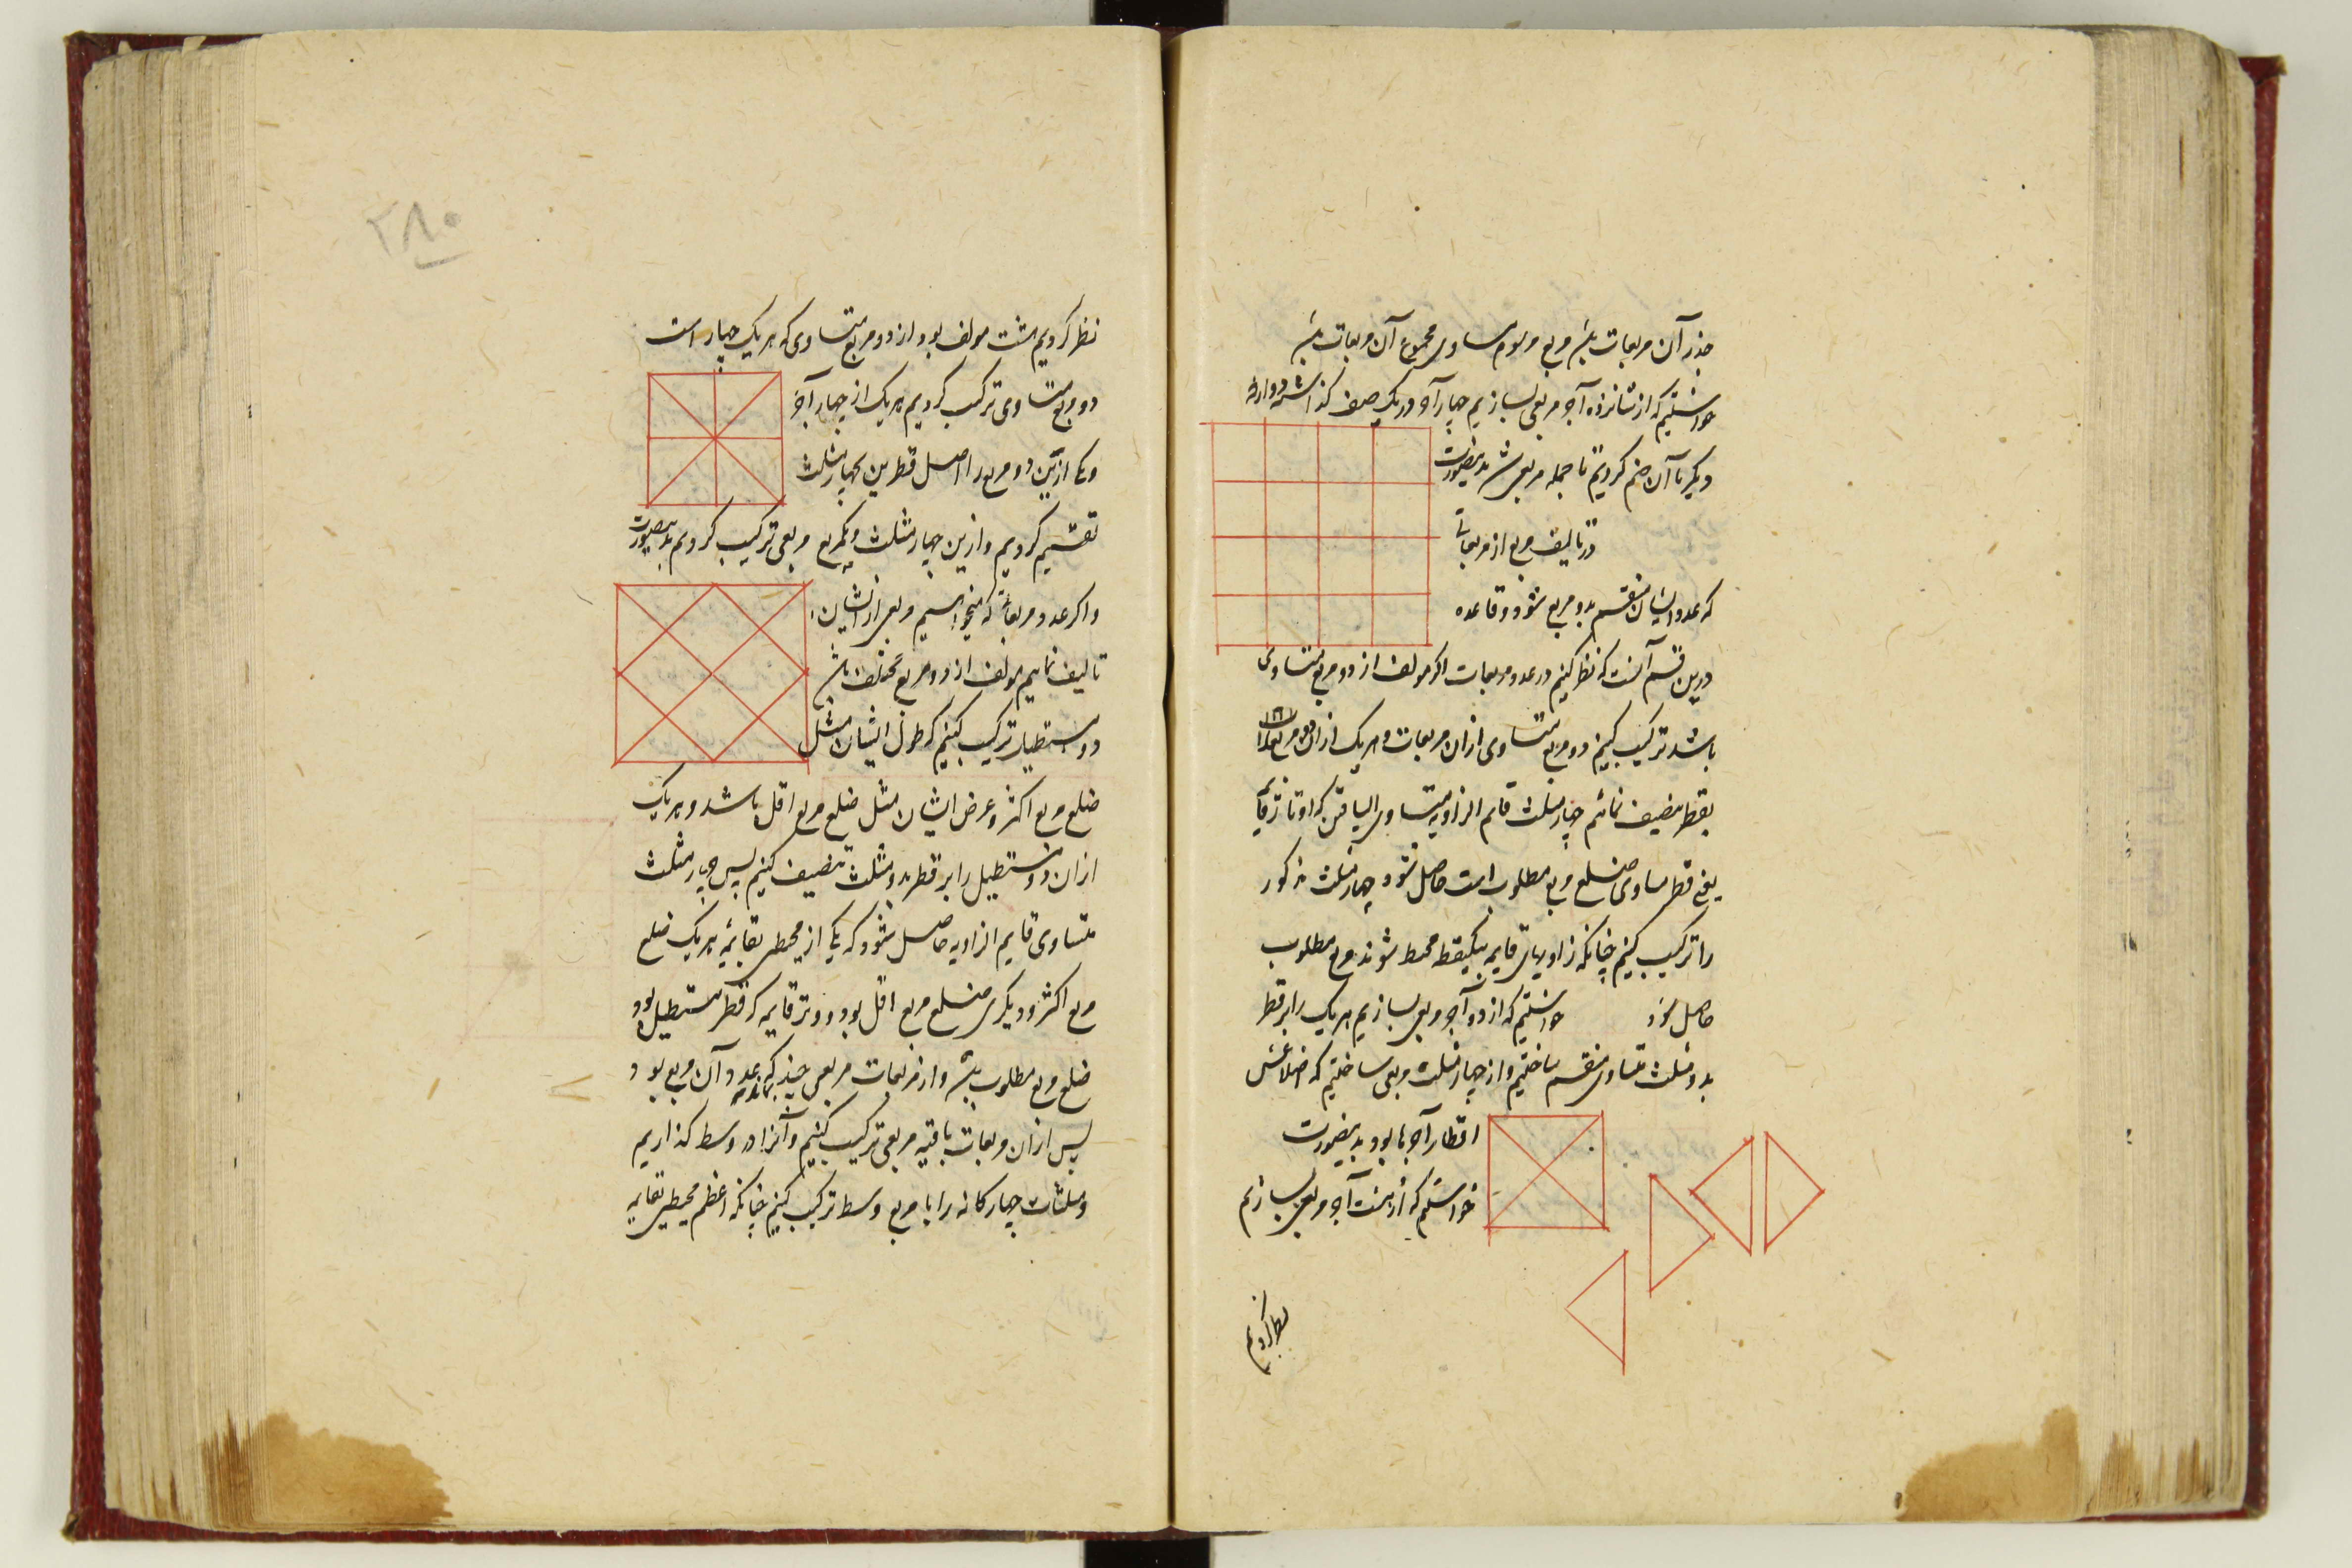 جذر آن مربعات باشد مربع مرسوم مساوی مجموع آن مربعات باشد
خواستیم که از شانزده آجر مربعی بسازیم چهار آجر در یک صف گذاشته و دوازده
دیگر با آن ضم کردیم تا جمله مربعی شد بدینصورت
در تالیف مربع از مربعاتی
که عدد ایشان منقسم بدو مربع شود و قاعده
درین قسم آنست که نظر کنیم در عدد مربعات اگر مولف از دو مربع متساوی
باشد ترکیب کنیم دو مربع متساوی ازان مربعات و هر یک ازان دو مربع را
بقطر تنصیف نمائیم چهار مثلث قایم الزاویه متساوی الساقین که اوتار قایم
یعنی قطر مساوی ضلع مربع مطلوب است حاصل شود چهار مثلث مذکور
را ترکیب کنیم چنانکه زاویهای قایمه بیکنقطه محیط شوند مربع مطلوب
حاصل شود خواستیم که از دو آجر مربعی بسازیم هر یک را بر قطر
بدو مثلث متساوی منقسم ساختیم و از چهار مثلث مربعی ساختیم که اضلاعش
اقطار آجرها بود بدینصورت
خواستیم که از هشت آجر مربعی بسازیم
نظر کردیم
۲۸۰
نظر کردیم هشت مولف بود از دو مربع متساوی که هر یک چهار است
دو مربع متساوی ترکیب کردیم هر یک از چهار آجر
و یکی ازین دو مربع را اصل قطرین بچهار مثلث
تقسیم کردیم و ازین چهار مثلث و یکمربع مربعی ترکیب کردیم بدینصورت
و اگر عدد مربعاتی که میخواهیم مربعی از ایشان
تالیف نماییم مولف از دو مربع مختلف باشد
دو مستطیل ترکیب کنیم که طول ایشان مثل
ضلع مربع اکثر و عرض ایشان مثل ضلع مربع اقل باشد و هر یک
ازان دو مستطیل را بر قطر بدو مثلث تنصیف کنیم پس چهار مثلث
متساوی قایم الزاویه حاصل شود که یکی از محیط بقایمه هر یک ضلع
مربع اکثر و دیگری ضلع مربع اقل بود و وتر قایمه که قطر مستطیل بود
ضلع مربع مطلوب باشد و از مربعات مربعی چند که بماند عدد آن مربع بود
پس ازان مربعات باقیه مربعی ترکیب کنیم و آنرا در وسط گذاریم
و مثلثات چهارگانه را با مربع وسط ترکیب کنیم چنانکه اعظم محیطین بقایمه